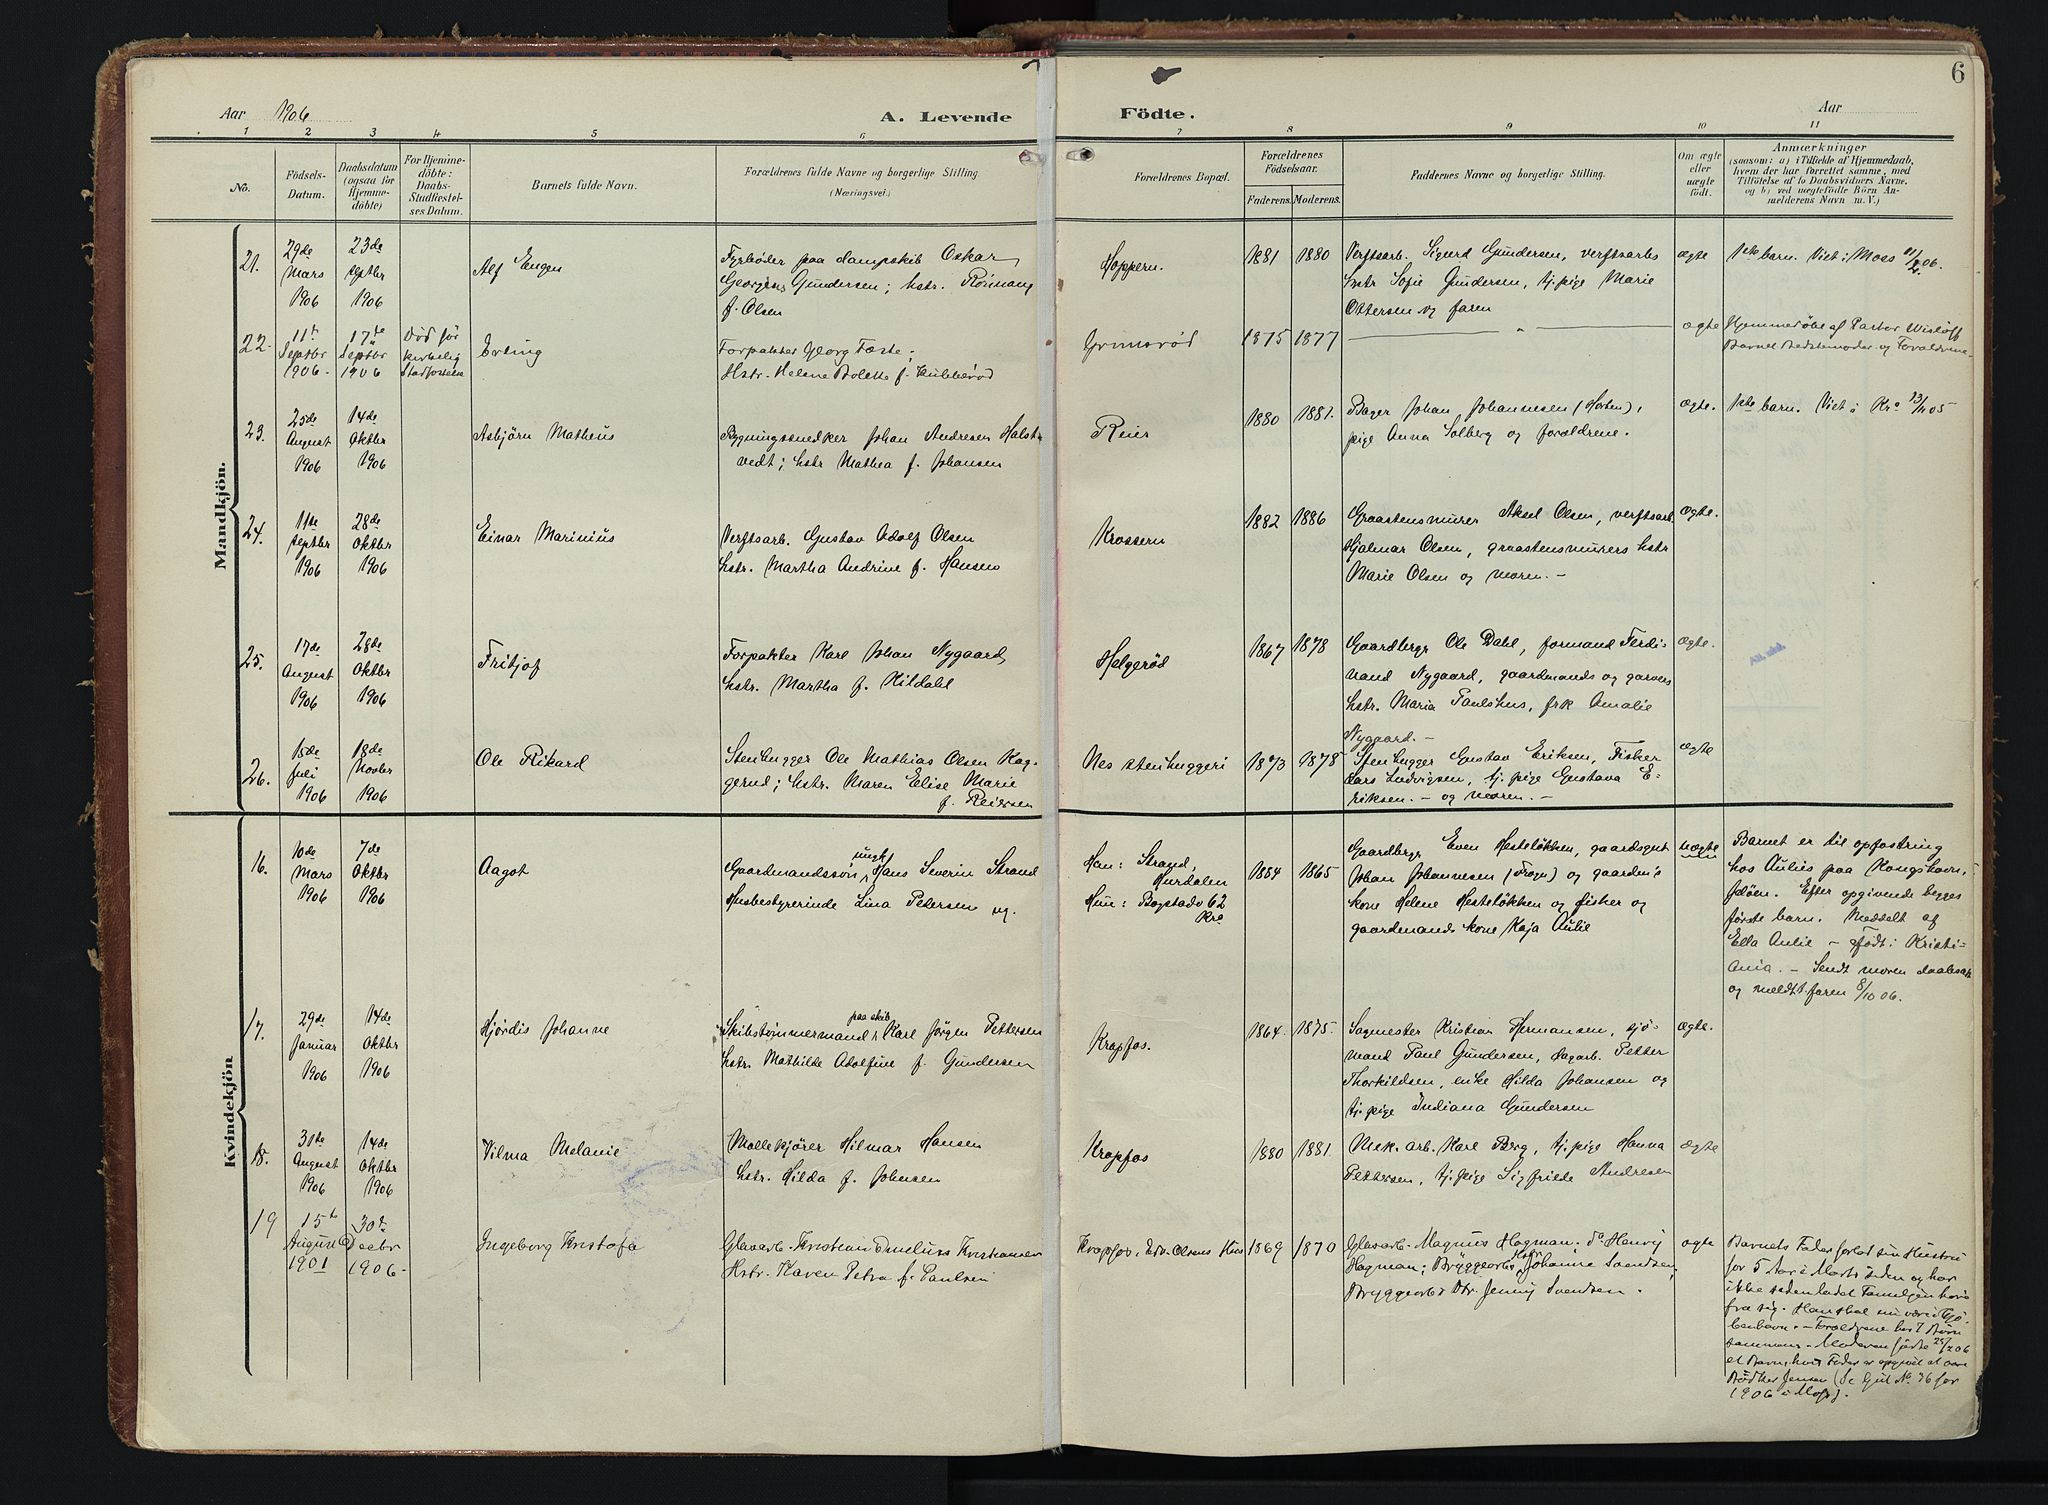 6
Aar 1906
A. Levende Födte.
Aar
1 2 3 4 5 6 7 8 9 10 11
No.
Födsels-
Datum.
Daabsdatum
(ogsaa for
Hjemme-
döbte)
For Hjemme-
döbte:
Daabs-
Stadfæstel-
ses Datum.
Barnets fulde Navn.
Forældrenes fulde Navne og borgerlige Stilling
(Næringsvei.)
Forældrenes Bopæl.
Forældrenes
Födselsaar.
Faderens. Moderens.
Faddernes Navne og borgerlige Stilling.
Om ægte
eller
uægte
födt.
Anmærkninger
(saasom: a) i Tilfælde af Hjemmedaab,
hvem der har forrettet samme, med
Tilföielse af to Daabsvidners Navne.
og b) ved uegtefödte Börn An-
melderens Navn m. V.)
Mandkjön.
21.
29de
Mars
1906
23de
septbr
1906
Alf Eugen
Fyrböder paa dampskib Oskar
Georgius Gundersen; hstr.
f. Olsen
Hoppern.
1881 1880
Verftsarb. Sigurd Gundersen, verftsarbs
hstr Sofie Gundersen, tj. pige Marie
Ottersen og faren
ægte
1ste barn. Viet i Moss 11/2 06.
22.
11te
Septbr
1906.
17de
Septbr
1906
Död för
kirkelig
Stadfæstelse
Erling
Forpakter Georg Tæste;
Hstr. Helene Bolette f. Kubberöd
Grimsröd
1875 1877
— " —
ægte
Hjemmedöbt af Pastor Wislöff
Barnets Bedstemoder og Forældrene
23.
25de
August
1906
14de
Oktbr
1906
Asbjörn Matheus
Bygningssnedker Johan Andresen Halst-
vedt; hstr Mathea f. Johansen
Reier
1880 1881.
Bager Johan Johannesen (Horten),
pige Anna Solberg og forældrene.
ægte.
1ste barn. Viet i Kra 13/11 05
24.
11te
septbr
1906
28de
Oktbr
1906
Einar Marinius
Verftsarb. Gustav Adolf Olsen
hstr. Martha Andrine f. Hansen
Krossern
1882 1886
Graastensmurer Aksel Olsen, verftsarb.
Hjalmar Olsen, graastensmurers hstr
Marie Olsen og moren. -
ægte.
25.
17de
August
1906
28de
Oktbr
1906
Fritjof
Forpakter Karl Johan Nygaard,
hstr. Martha f. Kildahl
Helgeröd
1867 1878
Gaardbrgr Ole Dahl, formand Ferdi-
nand Nygaard, gaardmands og garvers
hstr. Maria Paulshus, frk Amalie
Nygaard. -
ægte.
26.
15de
Juli
1906
18de
Novbr
1906
Ole Rikard
Stenhugger Ole Mathias Olsen Hag-
gerud; hstr. Maren Elise Marie
f. Reiersen
Nes stenhuggeri
1873 1878
Stenhugger Gustav Eriksen, Fisker
Lars Ludvigsen, tj. pige Gustava E-
riksen. - og moren. -
ægte
Kvindekjön
16.
10de
Mars
1906
7de
Oktbr
1906
Aagot
Gaardmandssön ungk Hans Severin Strand
Husbestyrerinde Lina Petersen ug.
Han: Strand,
Hurdalen
Hun: Bogstadv 62
Kra
1884 1865
Gaardbrgr Even Hestelökken, gaardsgut
Johan Johannesen (Frogn) og gaardm's
kone Helene Hestelökken og fisker og
gaardmands kone Kaja Aulie
uægte
Barnet er til opfostring
hos Aulies paa Kongshavn,
Jelöen. Efter opgivende begges
förste barn. Meddelt af
Ella Aulie - Födt i Kristi-
ania. - Sendt moren daabsatt
og meldt faren 8/10 06.
17.
29de
Januar
1906
14de
Oktbr
1906
Hjördis Johanne
Skibstömmermand paa skib Karl Jörgen Pettersen
hstr. Mathilde Adolfine f. Gundersen
Krapfos.
1864. 1875.
Sagmester Kristian Hermansen, sjö-
mand Paul Gundersen, sagarb. Petter
Thorkildsen, enke Hilda Johansen og
tj. pige Indiana Gundersen
ægte.
18.
30te
August
1906
14de
Oktbr
1906
Vilma Melanie
Möllekjörer Hilmar Hansen
hstr. Hilda f. Johnsen
Krapfos
1880 1881.
Mek. arb. Karl Berg, tj. pige Hanna
Pettersen, tj. pige Sigfriede Andresen
ægte
19
15de
August
1901
30te
Decbr
1906.
Ingeborg Kristofa
Glasarb. Kristian Emelius Kristiansen
Hstr. Karen Petra f. Paulsen
Krapfos, Edv. Olsens Hus
1869 1870
Glasarb. Magnus Hagman; do Henrij
Hagman; Bryggearbs Hstr Johanne Svendsen;
Bryggearbs Dtr. Jenny Svendsen.
ægte
Barnets Fader forlod sin Hustru
for 5 Aar i Marts siden og har
ikke siden ladet Familjen höre
fra sig. Han skal nu være i Kjö-
benhavn. - Forældrene har 7 Börn
sammen. Moderen födte 25/2 06
et Barn, hvis Fader er opgivet at være
Bödker Jensen (Se Gjul No. 76 for
1906 i Moss).